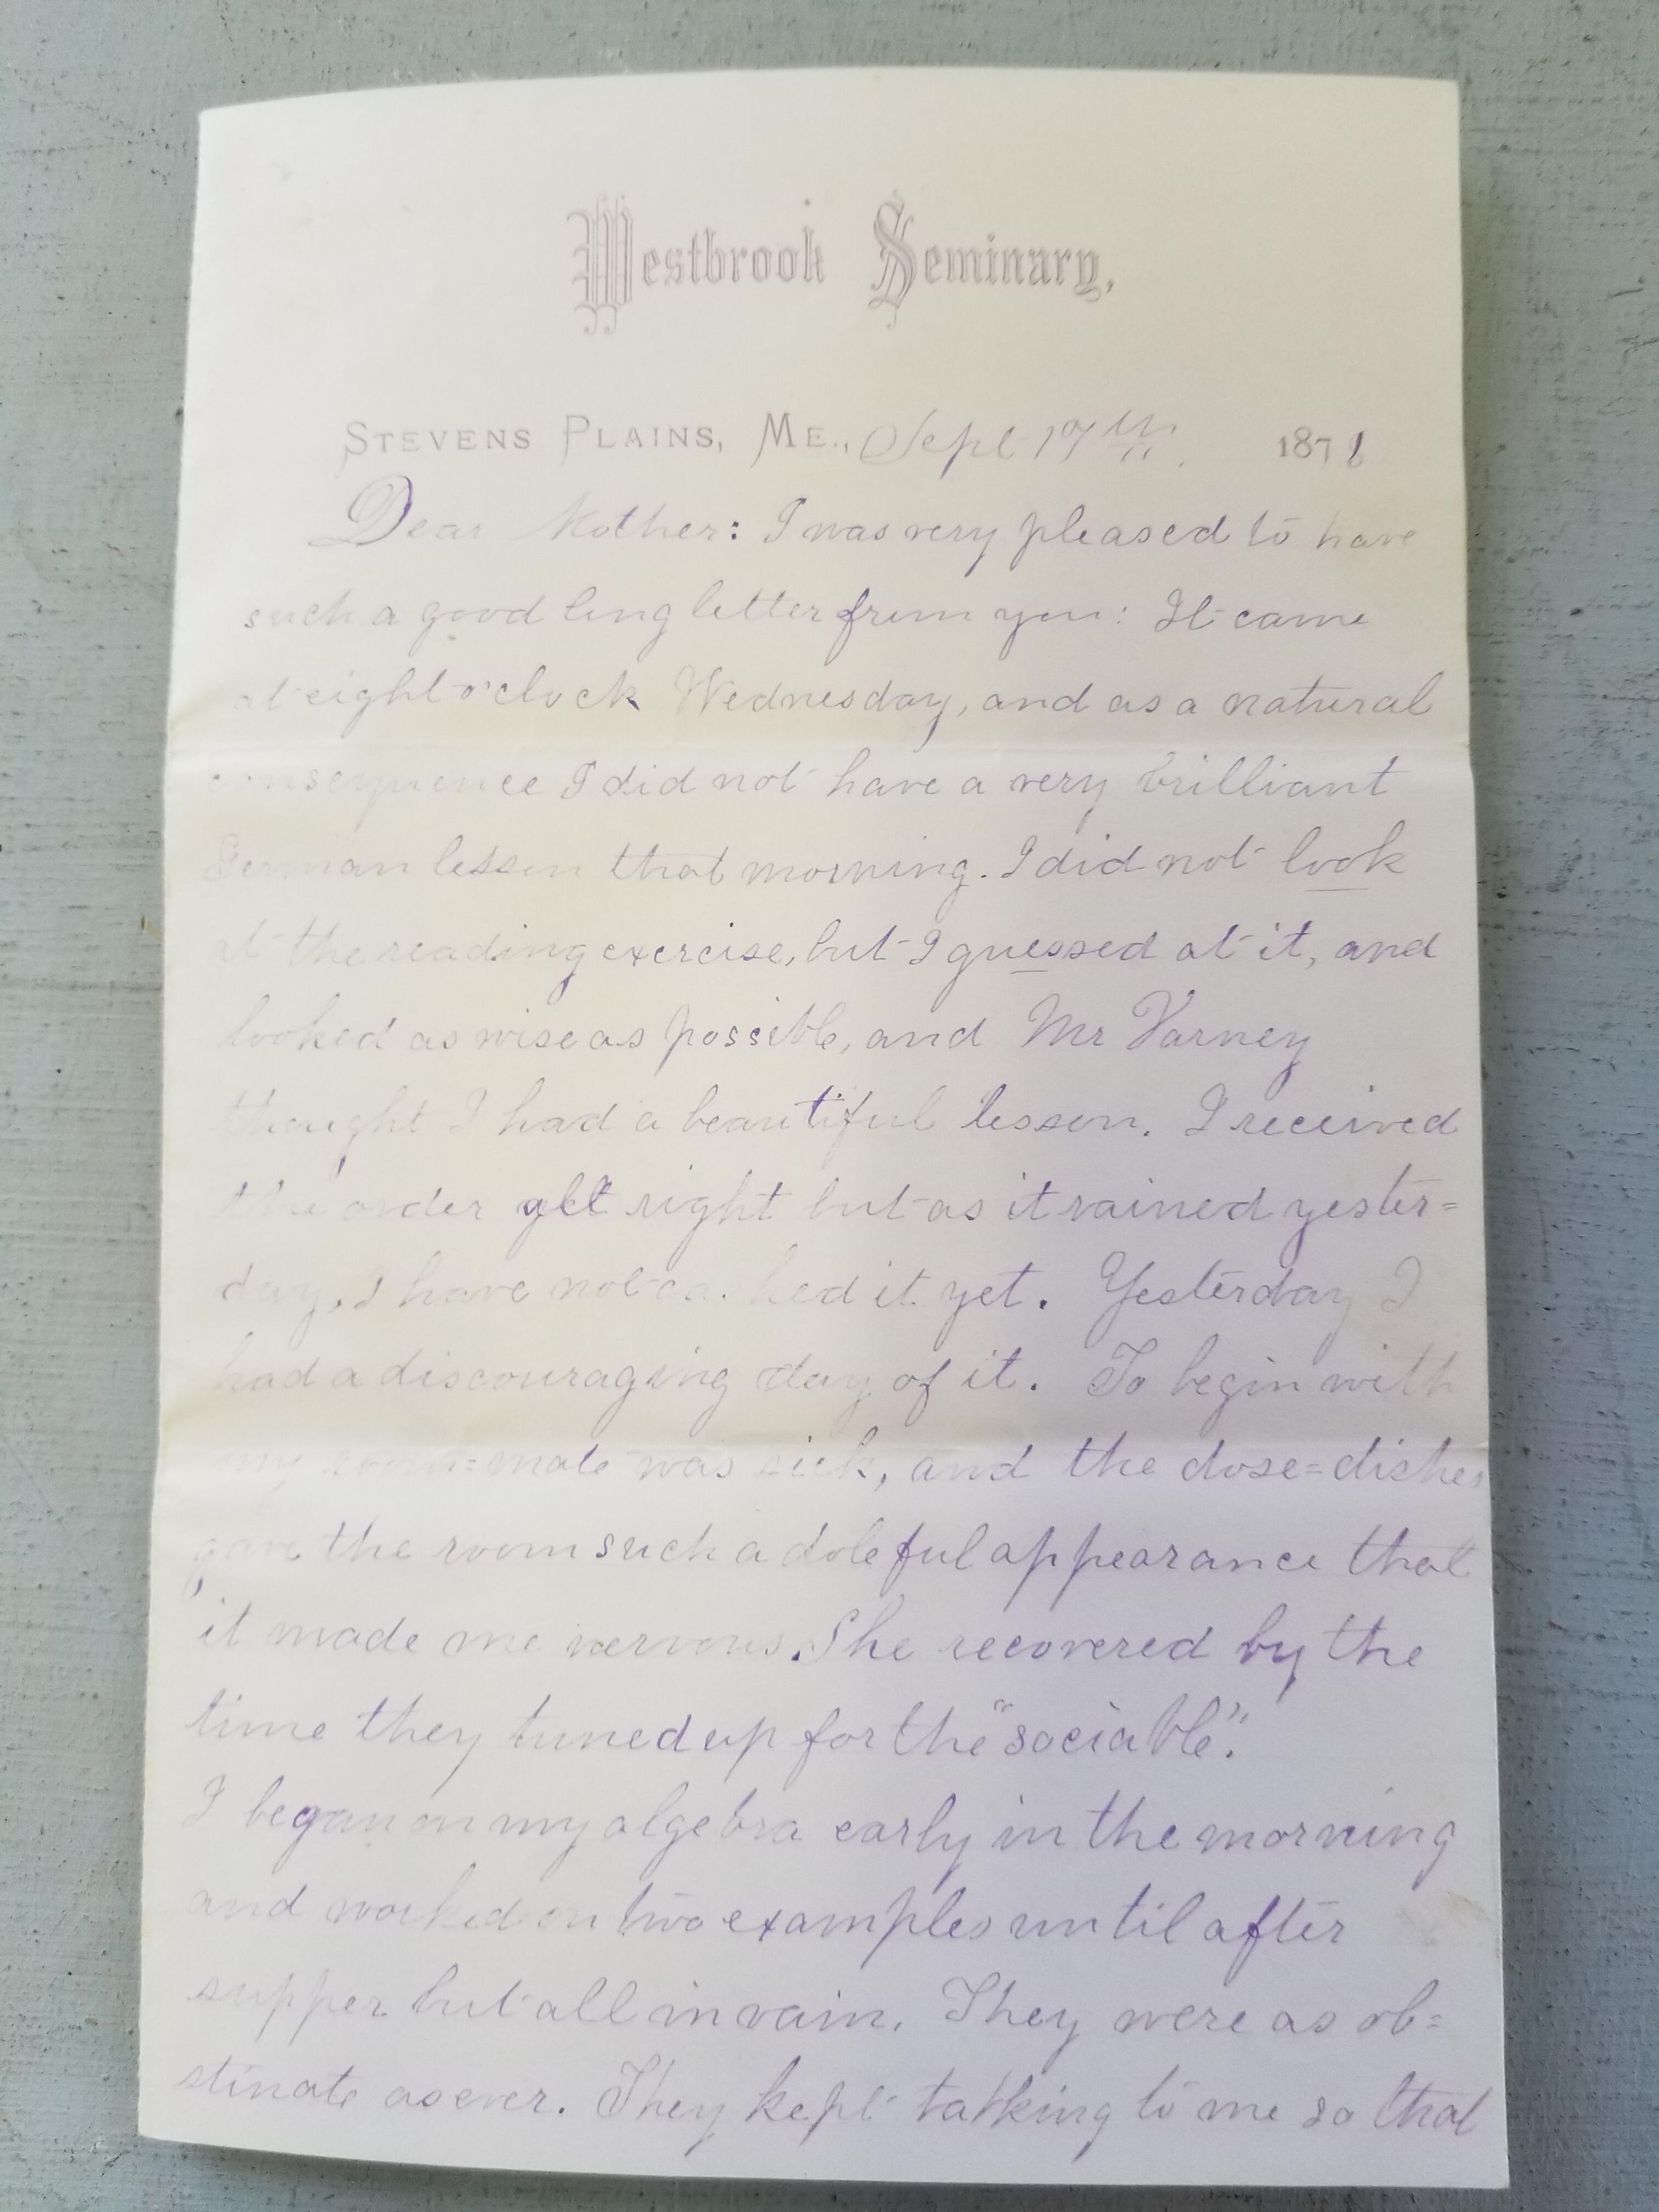 Westbrook Seminary,
STEVENS PLAINS, ME., Sept 19th. 1878
Dear Mother: I was very pleased to have
such a good long letter from you: It came
at eight o'clock Wednesday, and as a natural
consequence I did not have a very brilliant
German lesson that morning. I did not look
at the reading exercise, but I guessed at it, and
looked as wise as possible, and Mr Varney
thought I had a beautiful lesson. I received
the order all right but as it rained yester=
day, I have not cashed it yet. Yesterday I
had a discouraging day of it. To begin with
my room=mate was sick, and the dose=dishes
gave the room such a doleful appearance that
it made me nervous. She recovered by the
time they tuned up for the "sociable".
I began on my algebra early in the morning
and worked on two examples until after
supper but all in vain. They were as ob=
stinate as ever. They kept talking to me so that